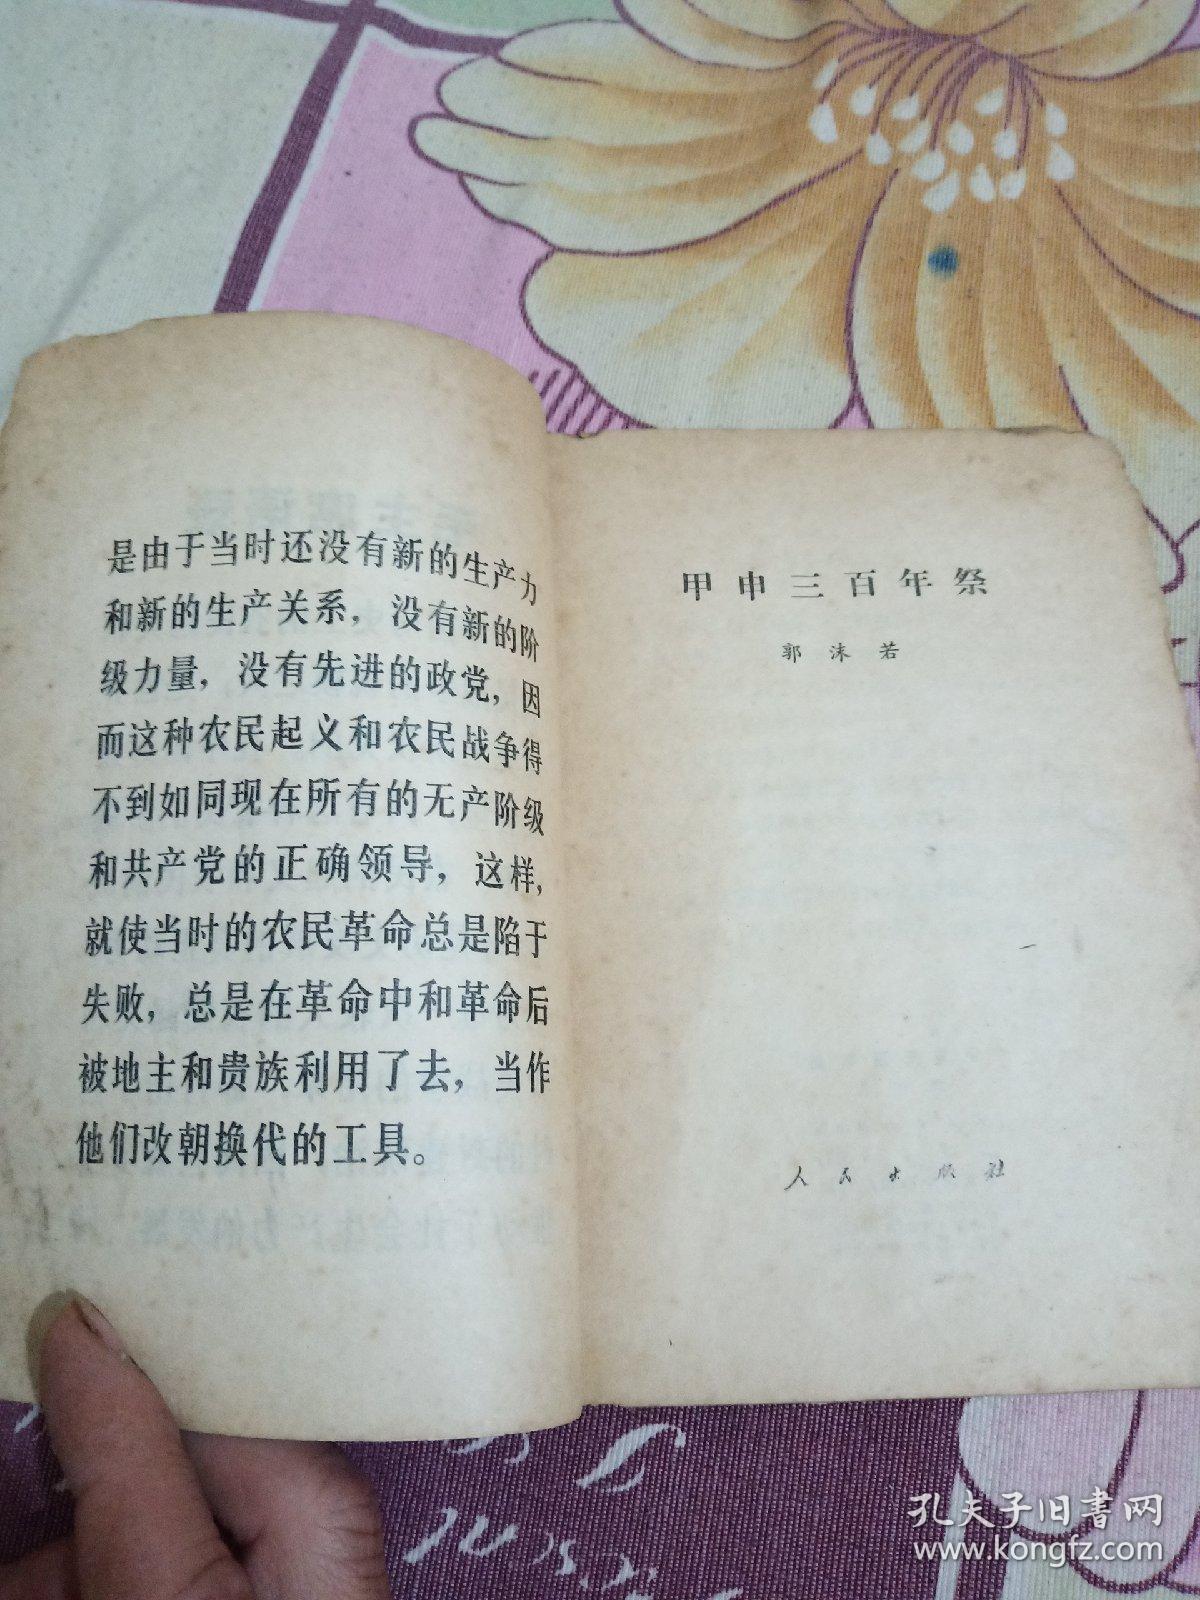 是由于当时还没有新的生产力
和新的生产关系，没有新的阶
级力量，没有先进的政党，因
而这种农民起义和农民战争得
不到如同现在所有的无产阶级
和共产党的正确领导，这样，
就使当时的农民革命总是陷于
失败，总是在革命中和革命后
被地主和贵族利用了去，当作
他们改朝换代的工具。
甲申三百年祭
郭沫若
人民出版社
孔夫子旧书网
www.kongfz.com